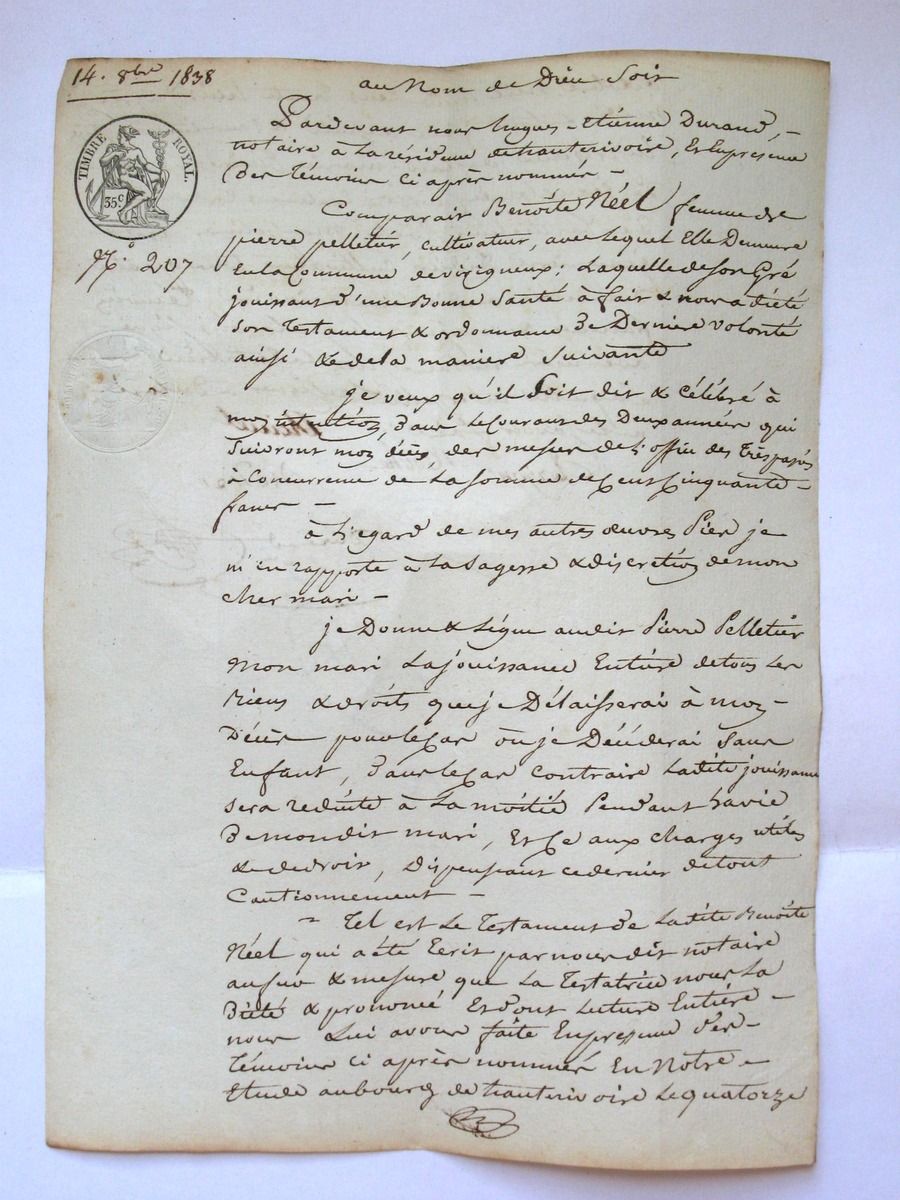 14. 8bre 1838
au Nom de Dieu Soit
TIMBRE ROYAL.
35 c
No. 207
Pardevant nous hugues-Etienne Durand, -
notaire à La résidence de hauterivoire, Et En présence
Des Témoins Ci après nommés -
Comparait Benoîte Néel femme de
pierre pelletier, cultivateur, avec Lequel Elle Demeure
En La Commune de virigneux; Laquelle de Son Gré
jouissant d'une Bonne Santé à fait & nous a dicté
Son Testament & ordonnance De Derniere volonté
ainsi & de la maniere Suivante
je veux qu'il Soit dit & Célébré à
mon intention, Dans Le Courant des Deux années qui
Suivront mon décès des messes de L'office des Trépassés
à Concurrence de La Somme de Cent Cinquante -
francs -
à L'egard de mes autres œuvres Pies je
m'en rapporte à La Sagesse & discrétion de mon
Cher mari -
je Donne & Légue audit Pierre Pelletier
Mon mari La jouissance Entière de tous Les
Biens & droits que je Délaisserai à mon -
Décès pour le Cas où je Décéderai Sans
Enfant, Dans le Cas contraire Ladite jouissance
sera reduite à La moitié Pendant La vie
De mondit mari, Et Ce aux charges utiles
& de droit, Dispensant ce dernier de tout
Cautionnement -
Tel est Le Testament de Ladite Benoîte
Néel qui a été Ecrit par nous dit notaire
au fur & mesure que La Testatrice nous La
Dicté & prononcé Et dont Lecture Entière -
nous Lui avons faite En présence des -
Témoins Ci après nommés En Notre -
Etude au bourg de hauterivoire Le quatorze